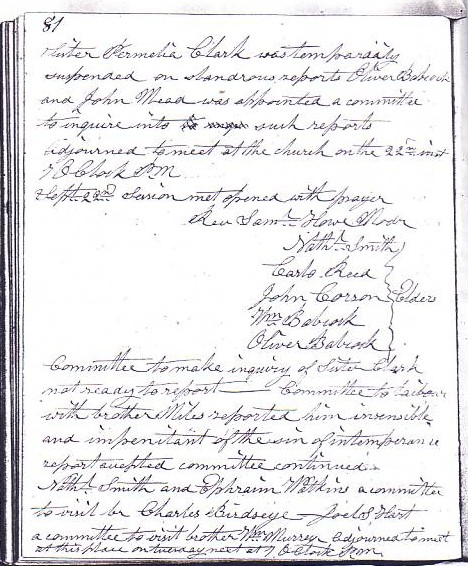 81
Sister Permelia Clark was temporarily
suspended on slandrous reports Oliver Babcock
and John Mead was appointed a committee
to inquire into such reports
adjourned to meet at the church on the 22nd inst
7 O Clock P.M
Sept. 22nd Session met opened with prayer
Rev Saml. Howe Modr
Nathl. Smith
Carlo Reed
John Corson Elders
Wm Babcock
Oliver Babcock
Committee to make inquiry of Sister Clark
not ready to report — Committee to Labour
with brother Miles reported him insensible
and impenitant of the sin of intemperance
report accepted committee continued
Nathl. Smith and Ephraim Watkins a committee
to visit br Charles Birdseye — Joel S Hart
a committee to visit brother Wm Murrey Adjourned to met
at this place on tuesday next at 7 O Clock P.M.